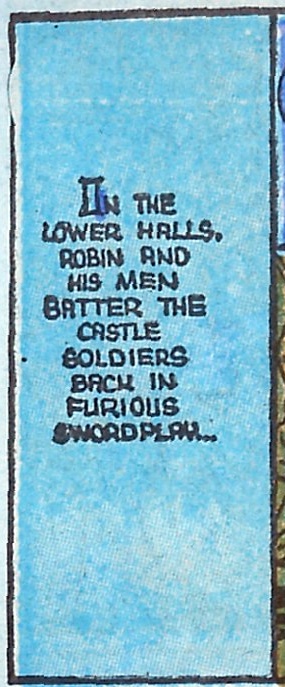 IN THE
LOWER HALLS,
ROBIN AND
HIS MEN
BATTER THE
CASTLE
SOLDIERS
BACK IN
FURIOUS
SWORDPLAY...